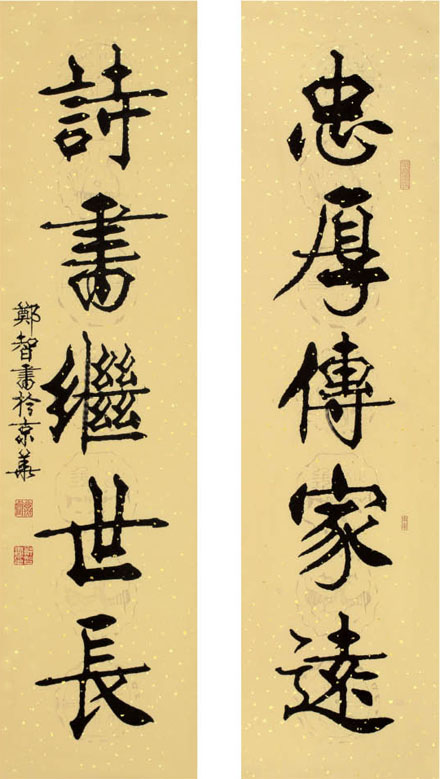 忠厚傳家遠
詩書繼世長
鄭智書於京華